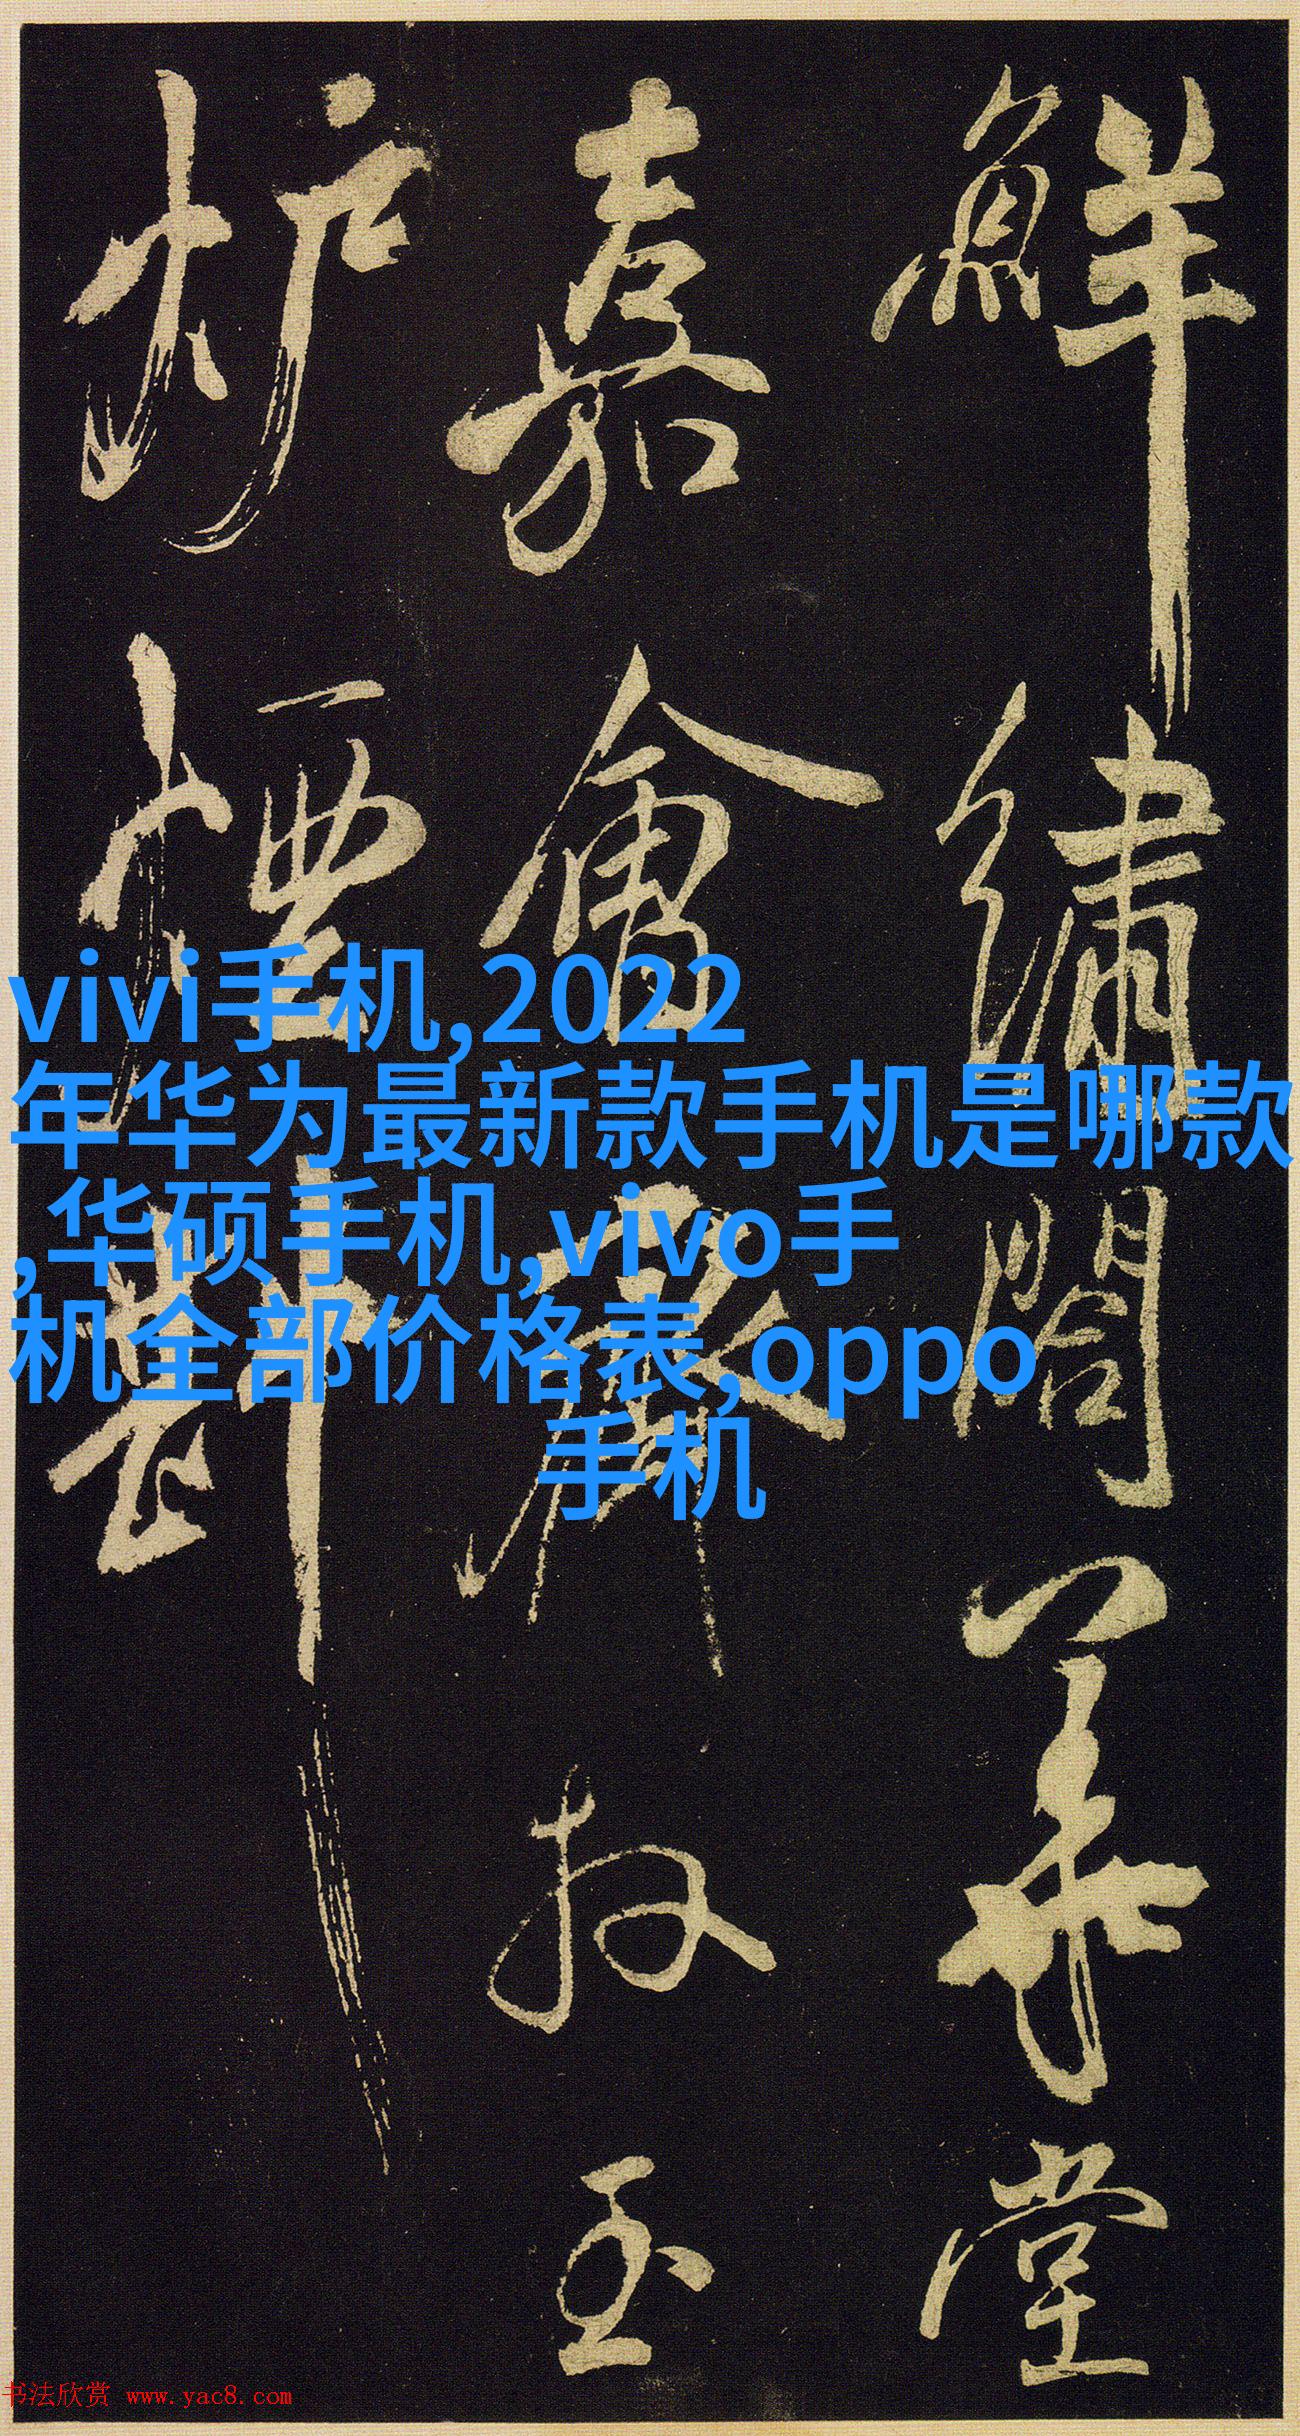 鮮繡閣華堂
嘉會玉
炉煙斟
vivi手机,2022
年华为最新款手机是哪款
,华硕手机,vivo手
机全部价格表,oppo
手机
书法欣赏 www.yac8.com